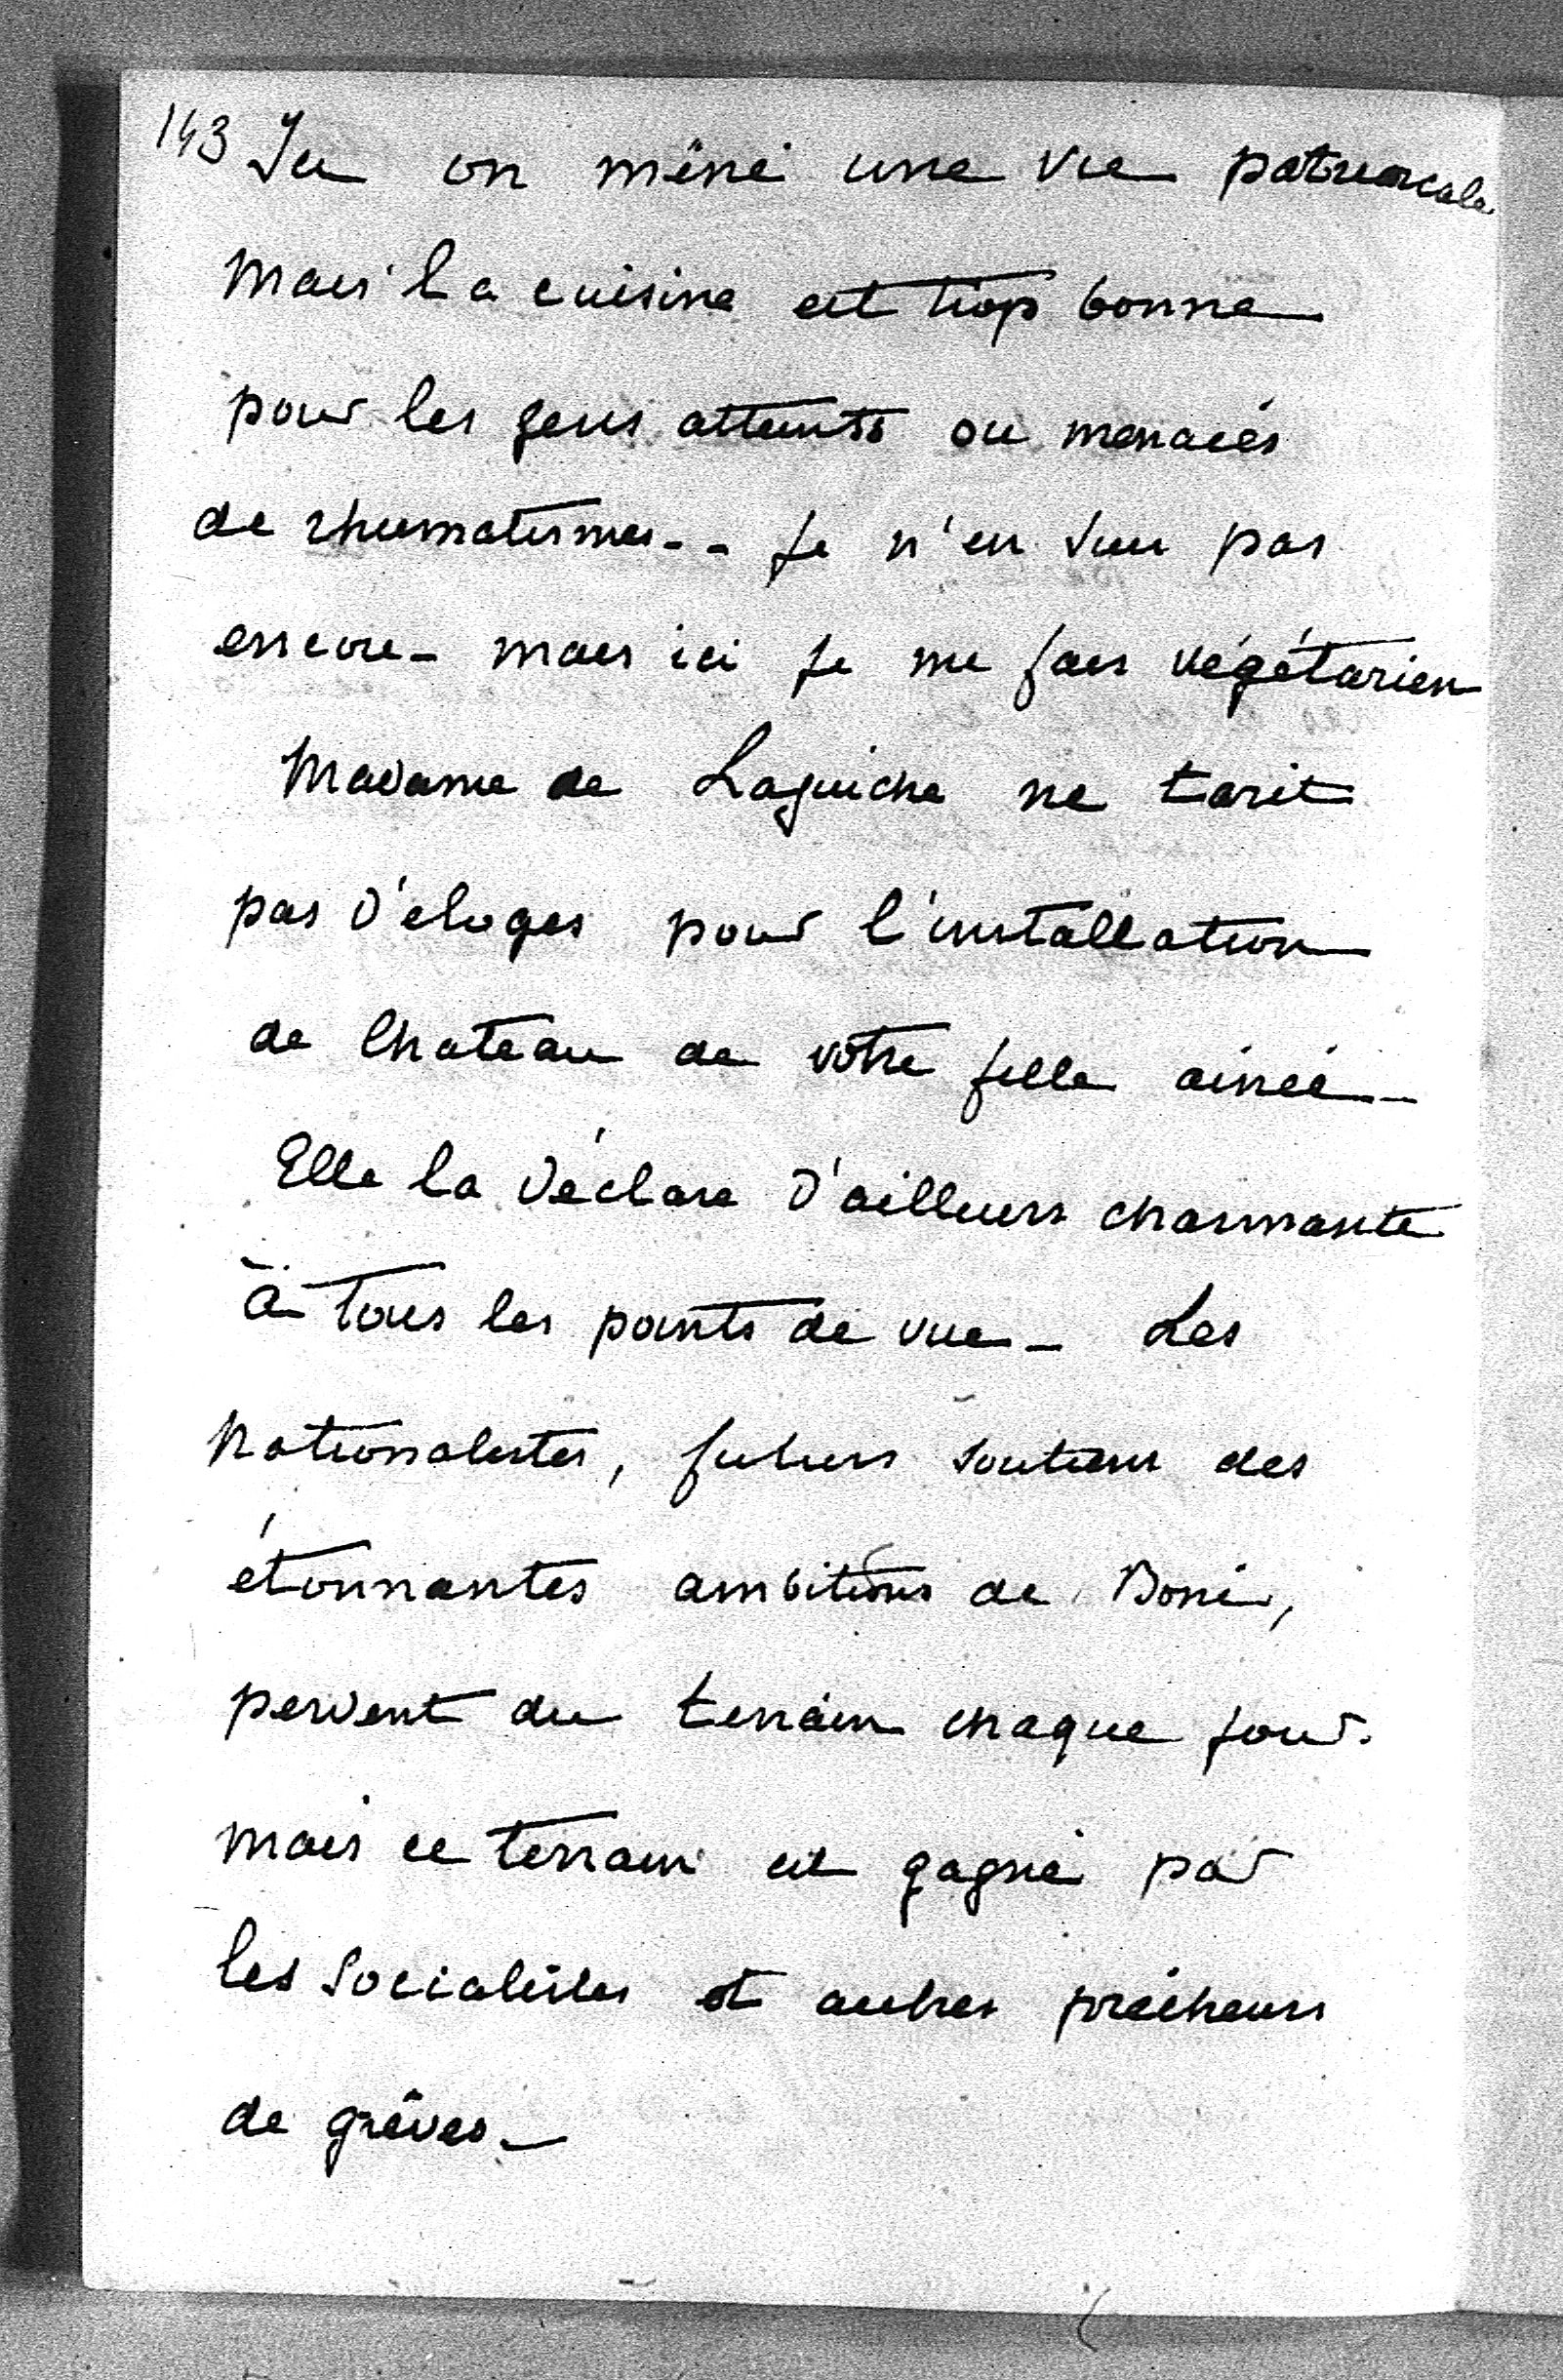 143 Ici on mène une vie patriarcale
mais la cuisine est trop bonne
pour les gens atteints ou menacés
de rhumatismes -- Je n'en suis pas
encore - mais ici je me fais végétarien
Madame de Laguiche ne tarit
pas d'éloges pour l'installation
de Chateau de votre fille ainée -
Elle la déclare d'ailleurs charmante
à tous les points de vue - Les
Nationalistes, futurs soutiens des
étonnantes ambitions de Boni,
perdent du terrain chaque jour.
mais ce terrain est gagné par
les Socialistes et autres prêcheurs
de grèves -